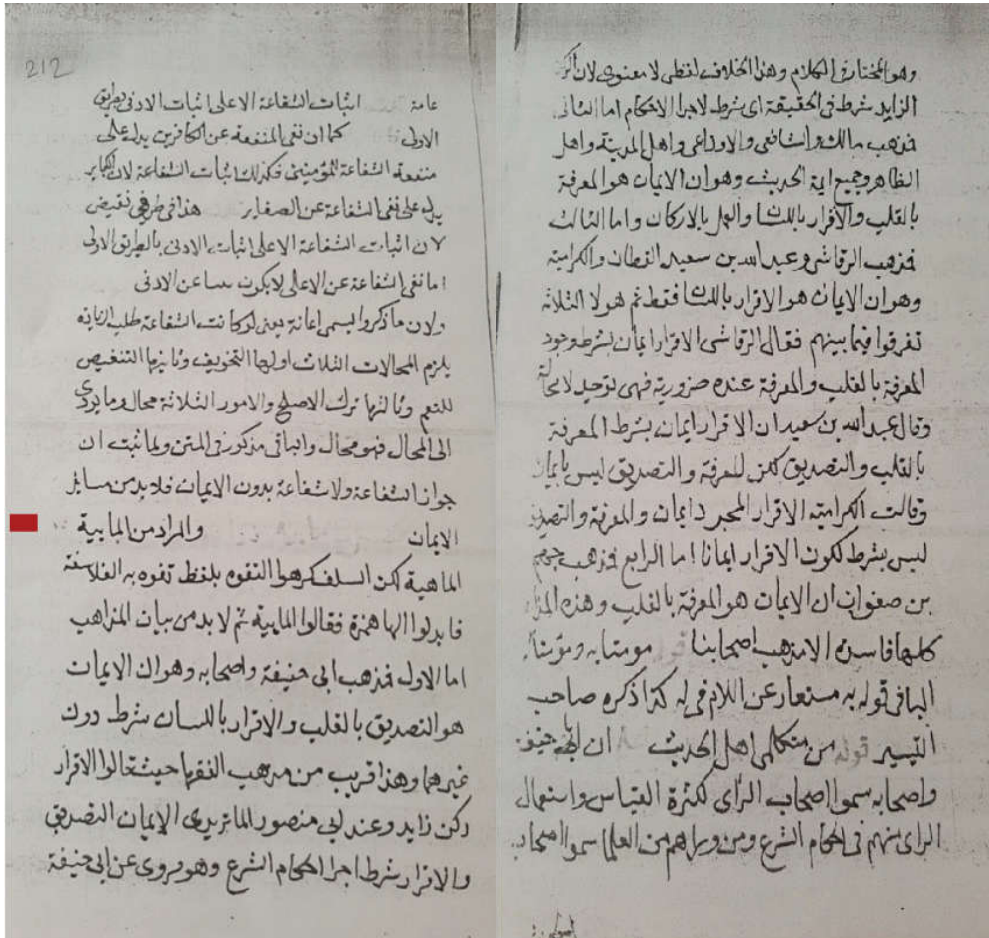 212
عامة اثبات الشفاعة الاعلى اثبات الادنى بطريق
الاولى كما ان نفى المنفعة عن الكافرين يدل على
منفعة الشفاعة للمؤمنين فكذلك اثبات الشفاعة لان الكباير
يدل على نفى الشفاعة عن الصغاير هذا فى طرفى نقيض
لان اثبات الشفاعة الاعلى اثبات الادنى بالطريق الاولى
اما نفى الشفاعة عن الاعلى لا يكون عن الادنى
ولان ما ذكروا يسمى اعانة يعنى لو كانت الشفاعة طلب الزيادة
يلزم المحالات الثلاث اولها التخويف وثانيها التنغيص
للنعم وثالثها ترك الاصلح والامور الثلاثة محال وما يودى
الى المحال فهو محال والباقى مذكور فى المتن ولما ثبت ان
جواز الشفاعة ولا شفاعة بدون الايمان فلا بد من مسايل
الايمان والمراد من المايية
الماهية لكن السلف كرهوا التفوه بلفظ تفوه به الفلاسفة
فابدلوا الها همزة فقالوا المايية ثم لا بد من بيان المذاهب
اما الاول فمذهب ابى حنيفة واصحابه وهو ان الايمان
هو التصديق بالقلب والاقرار باللسان شرط دون
غيرهما وهذا قريب من مذهب الفقها حيث قالوا الاقرار
ركن زايد وعند ابى منصور الماتريدى الايمان التصديق
والاقرار شرط اجرا احكام الشرع وهو مروى عن ابى حنيفة
وهو المختار فى الكلام وهذا الخلاف لفظى لا معنوى لان الركن
الزايد شرط فى الحقيقة اى شرط لاجرا الاحكام اما الثانى
فمذهب مالك والشافعى والاوزاعى واهل المدينة واهل
الظاهر وجميع ايمة الحديث وهو ان الايمان هو المعرفة
بالقلب والاقرار باللسان والعمل بالاركان واما الثالث
فمذهب الرقاشى وعبد الله بن سعيد القطان والكرامية
وهو ان الايمان هو الاقرار باللسان فقط ثم هولا الثلاثة
تفرقوا فيما بينهم فقال الرقاشى الاقرار ايمان بشرط وجود
المعرفة بالقلب والمعرفة عنده ضرورية فهى توجد لا محالة
وقال عبد الله بن سعيد ان الاقرار ايمان بشرط المعرفة
بالقلب والتصديق لكن المعرفة والتصديق ليس بايمان
وقالت الكرامية الاقرار المجرد ايمان والمعرفة والتصديق
ليس بشرط لكون الاقرار ايمانا اما الرابع فمذهب جهم
بن صفوان ان الايمان هو المعرفة بالقلب وهذه المذاهب
كلها فاسدة الا مذهب اصحابنا مومنا به ومومنا له
البا فى قوله به مستعار عن اللام فى له كذا ذكره صاحب
التيسير قوله من متكلمى اهل الحديث ان ابا حنيفة
واصحابه سموا اصحاب الراى لكثرة القياس واستعمال
الراى منهم فى احكام الشرع ومن وراهم من العلما سموا اصحاب